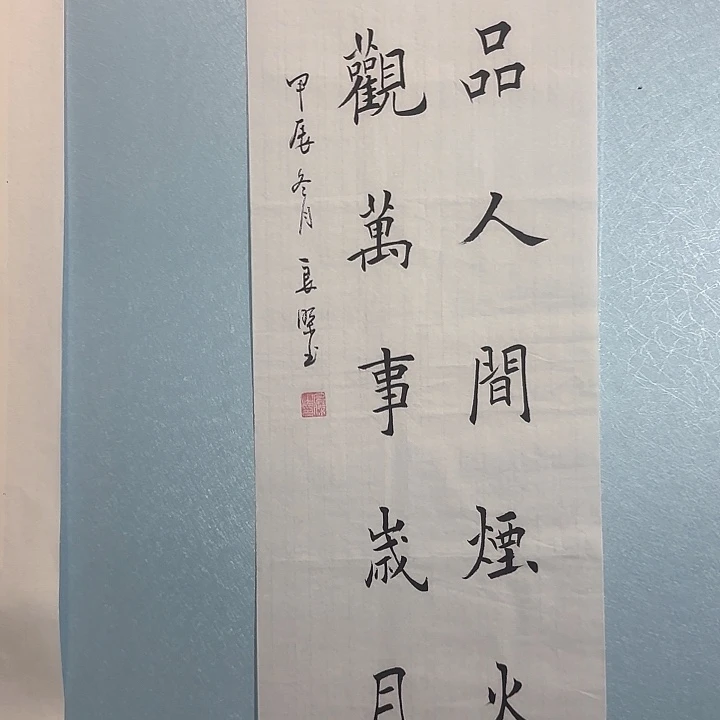 品人間煙火
觀萬事歲月
甲辰冬月 良